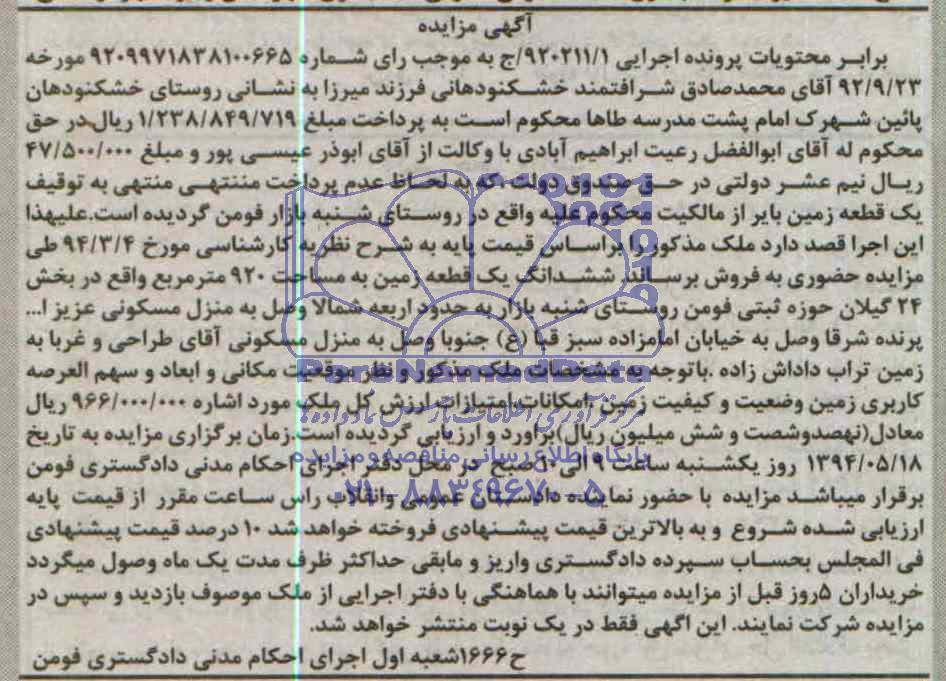 آگهی مزایده
برابر محتویات پرونده اجرایی ۹۲۰۲۱۱/۱/ج به موجب رای شماره ۹۲۰۹۹۷۱۸۳۸۱۰۰۶۶۵ مورخه
۹۲/۹/۲۳ آقای محمدصادق شرافتمند خشکنودهانی فرزند میرزا به نشانی روستای خشکنودهان
پائین شهرک امام پشت مدرسه طاها محکوم است به پرداخت مبلغ ۱/۲۳۸/۸۴۹/۷۱۹ ریال در حق
محکوم له آقای ابوالفضل رعیت ابراهیم آبادی با وکالت از آقای ابوذر عیسی پور و مبلغ ۴۷/۵۰۰/۰۰۰
ریال نیم عشر دولتی در حق صندوق دولت ،که به لحاظ عدم پرداخت مننتهی منتهی به توقیف
یک قطعه زمین بایر از مالکیت محکوم علیه واقع در روستای شنبه بازار فومن گردیده است.علیهذا
این اجرا قصد دارد ملک مذکور را براساس قیمت پایه به شرح نظریه کارشناسی مورخ ۹۴/۳/۴ طی
مزایده حضوری به فروش برساند. ششدانگ یک قطعه زمین به مساحت ۹۲۰ مترمربع واقع در بخش
۲۴ گیلان حوزه ثبتی فومن روستای شنبه بازار به حدود اربعه شمالا وصل به منزل مسکونی عزیز ا...
پرنده شرقا وصل به خیابان امامزاده سبز قبا (ع) جنوبا وصل به منزل مسکونی آقای طراحی و غربا به
زمین تراب داداش زاده .باتوجه به مشخصات ملک مذکور و نظر موقعیت مکانی و ابعاد و سهم العرصه
کاربری زمین وضعیت و کیفیت زمین ،امکانات امتیازات ارزش کل ملک مورد اشاره ۹۶۶/۰۰۰/۰۰۰ ریال
معادل(نهصدوشصت و شش میلیون ریال)براورد و ارزیابی گردیده است.زمان برگزاری مزایده به تاریخ
۱۳۹۴/۰۵/۱۸ روز یکشنبه ساعت ۹ الی ۱۰ صبح در محل دفتر اجرای احکام مدنی دادگستری فومن
برقرار میباشد مزایده با حضور نماینده دادستان عمومی وانقلاب راس ساعت مقرر از قیمت پایه
ارزیابی شده شروع و به بالاترین قیمت پیشنهادی فروخته خواهد شد ۱۰ درصد قیمت پیشنهادی
فی المجلس بحساب سپرده دادگستری واریز و مابقی حداکثر ظرف مدت یک ماه وصول میگردد
خریداران ۵روز قبل از مزایده میتوانند با هماهنگی با دفتر اجرایی از ملک موصوف بازدید و سپس در
مزایده شرکت نمایند. این اگهی فقط در یک نوبت منتشر خواهد شد.
ح۱۶۶۶شعبه اول اجرای احکام مدنی دادگستری فومن
ParsNamadData
پایگاه اطلاع رسانی مناقصه و مزایده
۰۲۱-۸۸۳۴۹۶۷۰-۵